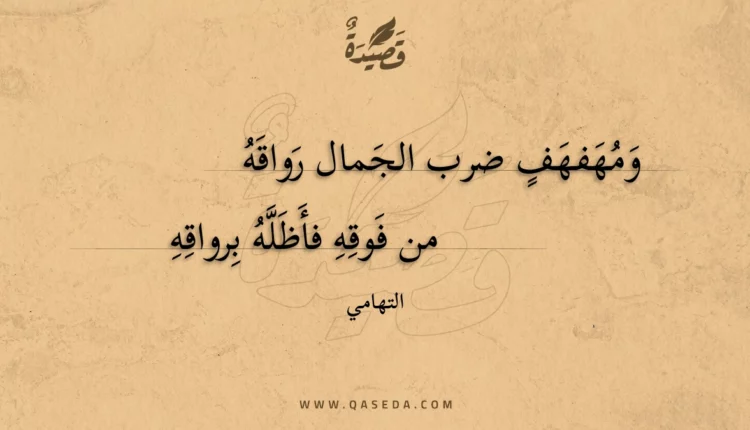 قَصِيدَةٌ
وَمُهَفهَفٍ ضرب الجَمال رَواقَهُ
من فَوقِهِ فأَظَلَّهُ بِرواقِهِ
التهامي
WWW.QASEDA.COM